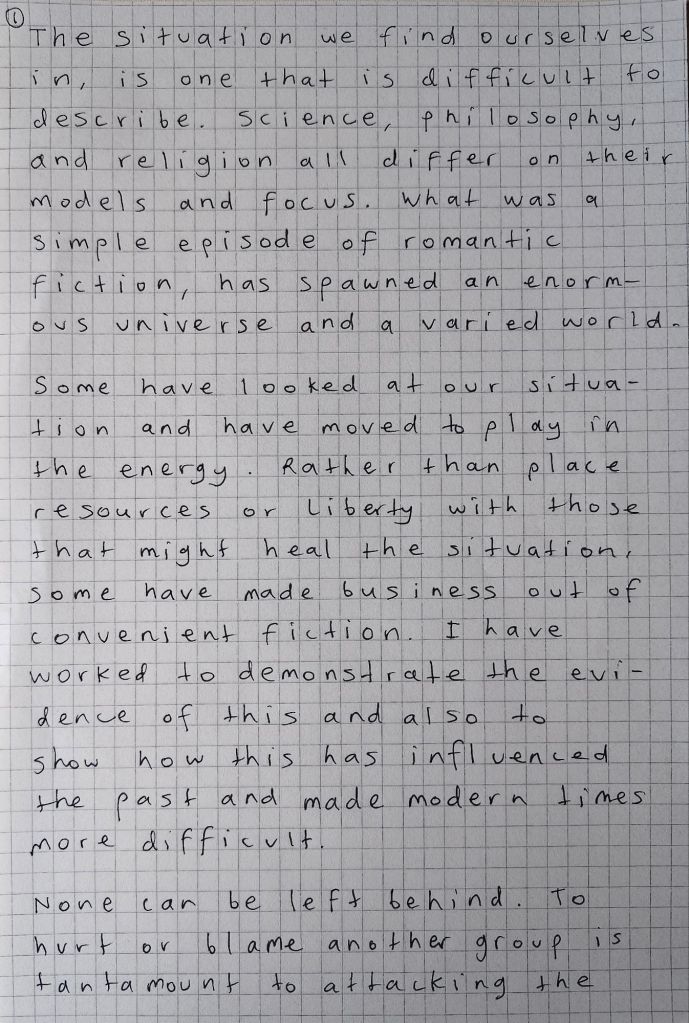 1
The situation we find ourselves
in, is one that is difficult to
describe. Science, philosophy,
and religion all differ on their
models and focus. What was a
simple episode of romantic
fiction, has spawned an enorm-
ous universe and a varied world.
Some have looked at our situa-
tion and have moved to play in
the energy. Rather than place
resources or liberty with those
that might heal the situation,
some have made business out of
convenient fiction. I have
worked to demonstrate the evi-
dence of this and also to
show how this has influenced
the past and made modern times
more difficult.
None can be left behind. To
hurt or blame another group is
tantamount to attacking the